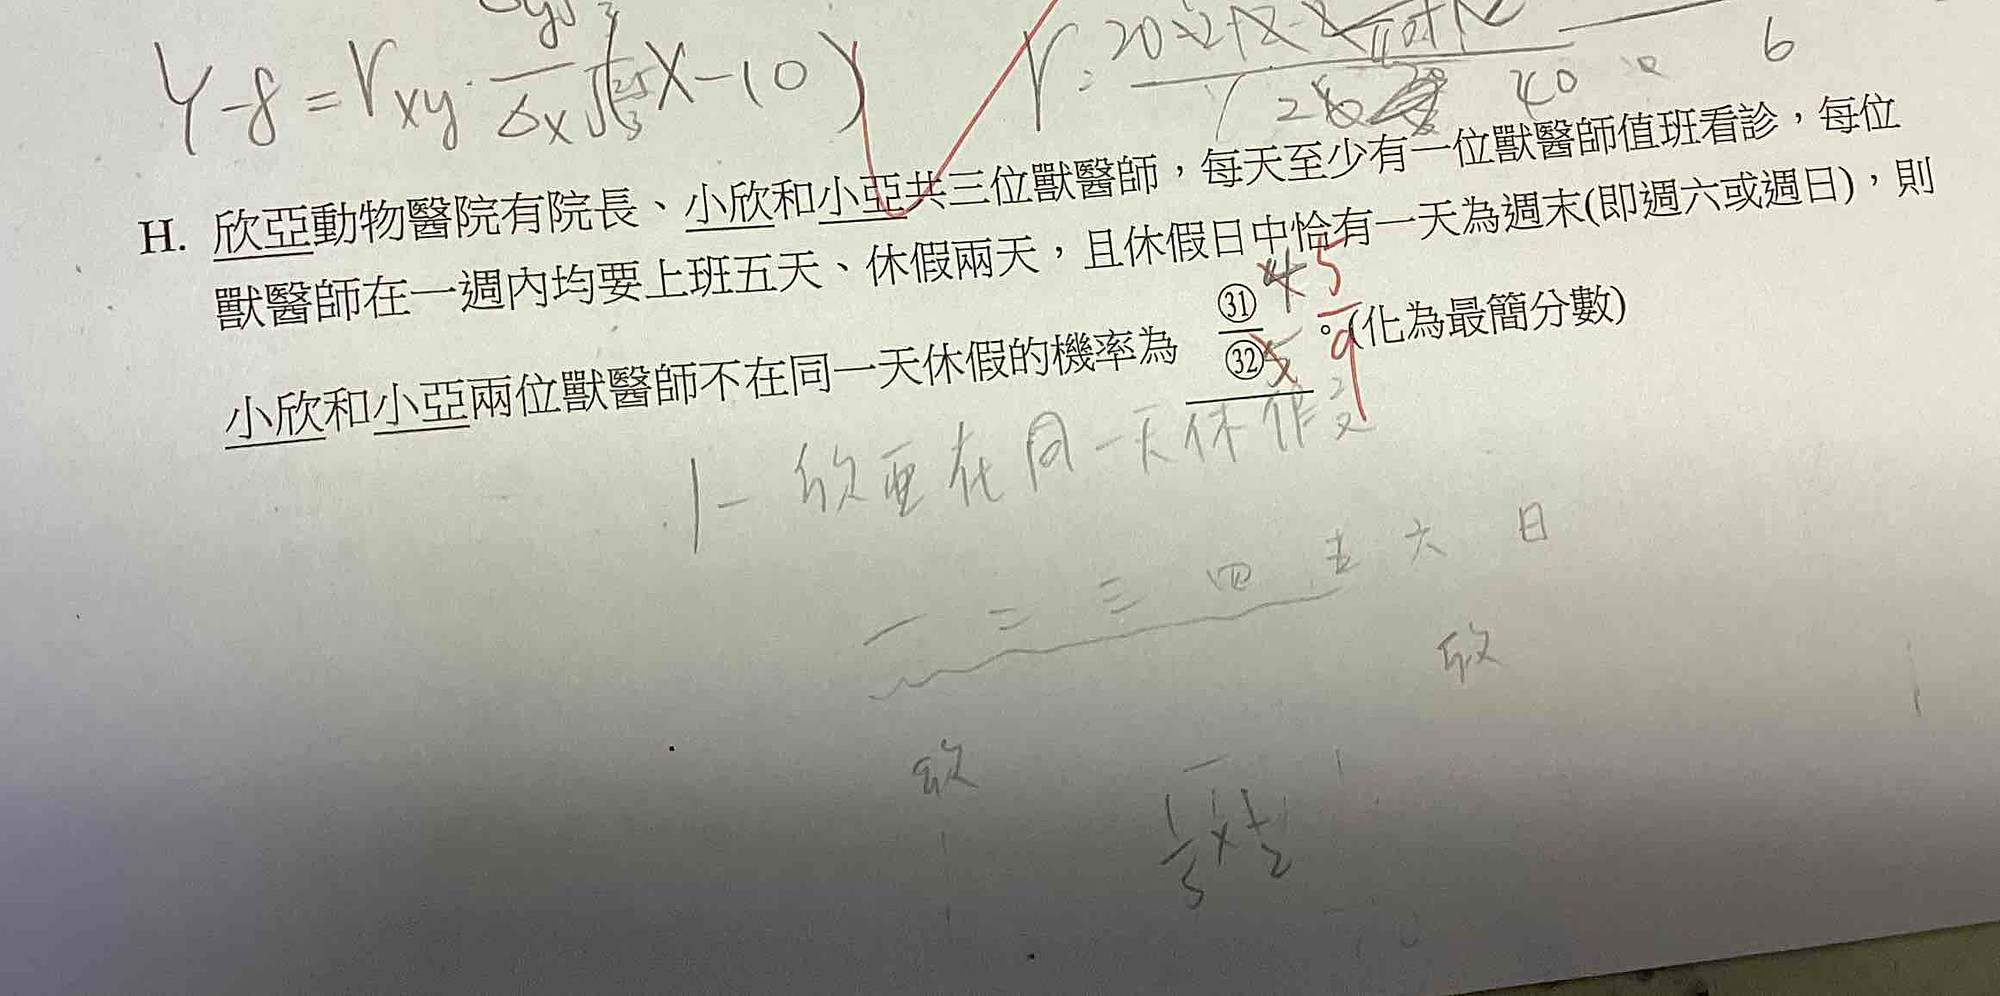 Y-8=rxy·
(X-10)
r=
40
6
H. 欣亞動物醫院有院長、小欣和小亞共三位獸醫師，每天至少有一位獸醫師值班看診，每位
獸醫師在一週內均要上班五天、休假兩天，且休假日中恰有一天為週末(即週六或週日)，則
小欣和小亞兩位獸醫師不在同一天休假的機率為 ㉛/㉜ 。(化為最簡分數)
4 5
5 9
1- 欣亞在同一天休
一 二 三 四 五 六 日
欣
欣
1/5 x 1/2